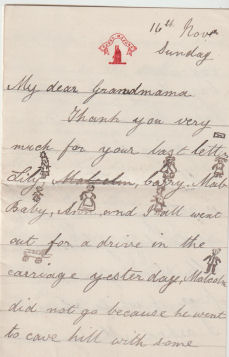 16th Novr
Sunday
My dear Grandmama
Thank you very
much for your last letter
Lily, Malcolm, Carry, Mab
Baby, Ann and I all went
out for a drive in the
carriage yesterday, Malcolm
did not go because he went
to cave hill with some